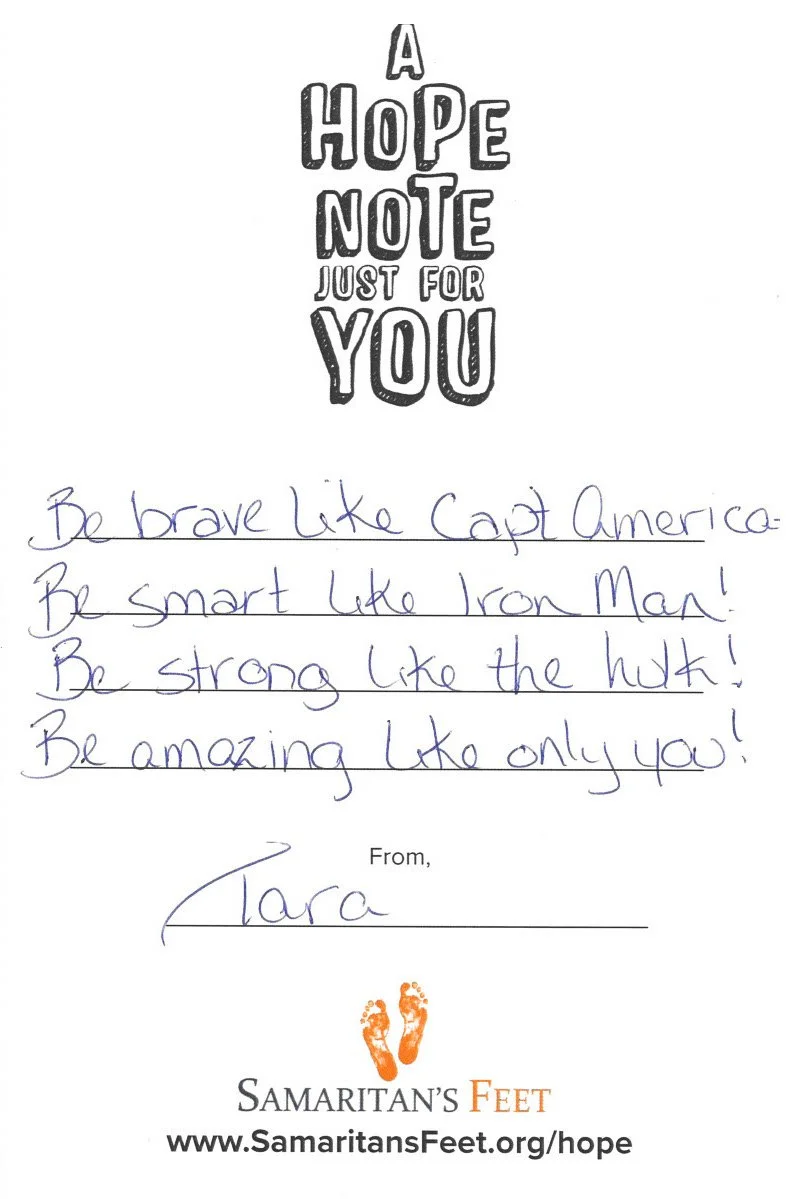 A
HOPE
NOTE
JUST FOR
YOU
Be brave like Capt America-
Be smart like Iron Man!
Be strong like the hulk!
Be amazing like only you!
From,
Tara
SAMARITAN'S FEET
www.SamaritansFeet.org/hope